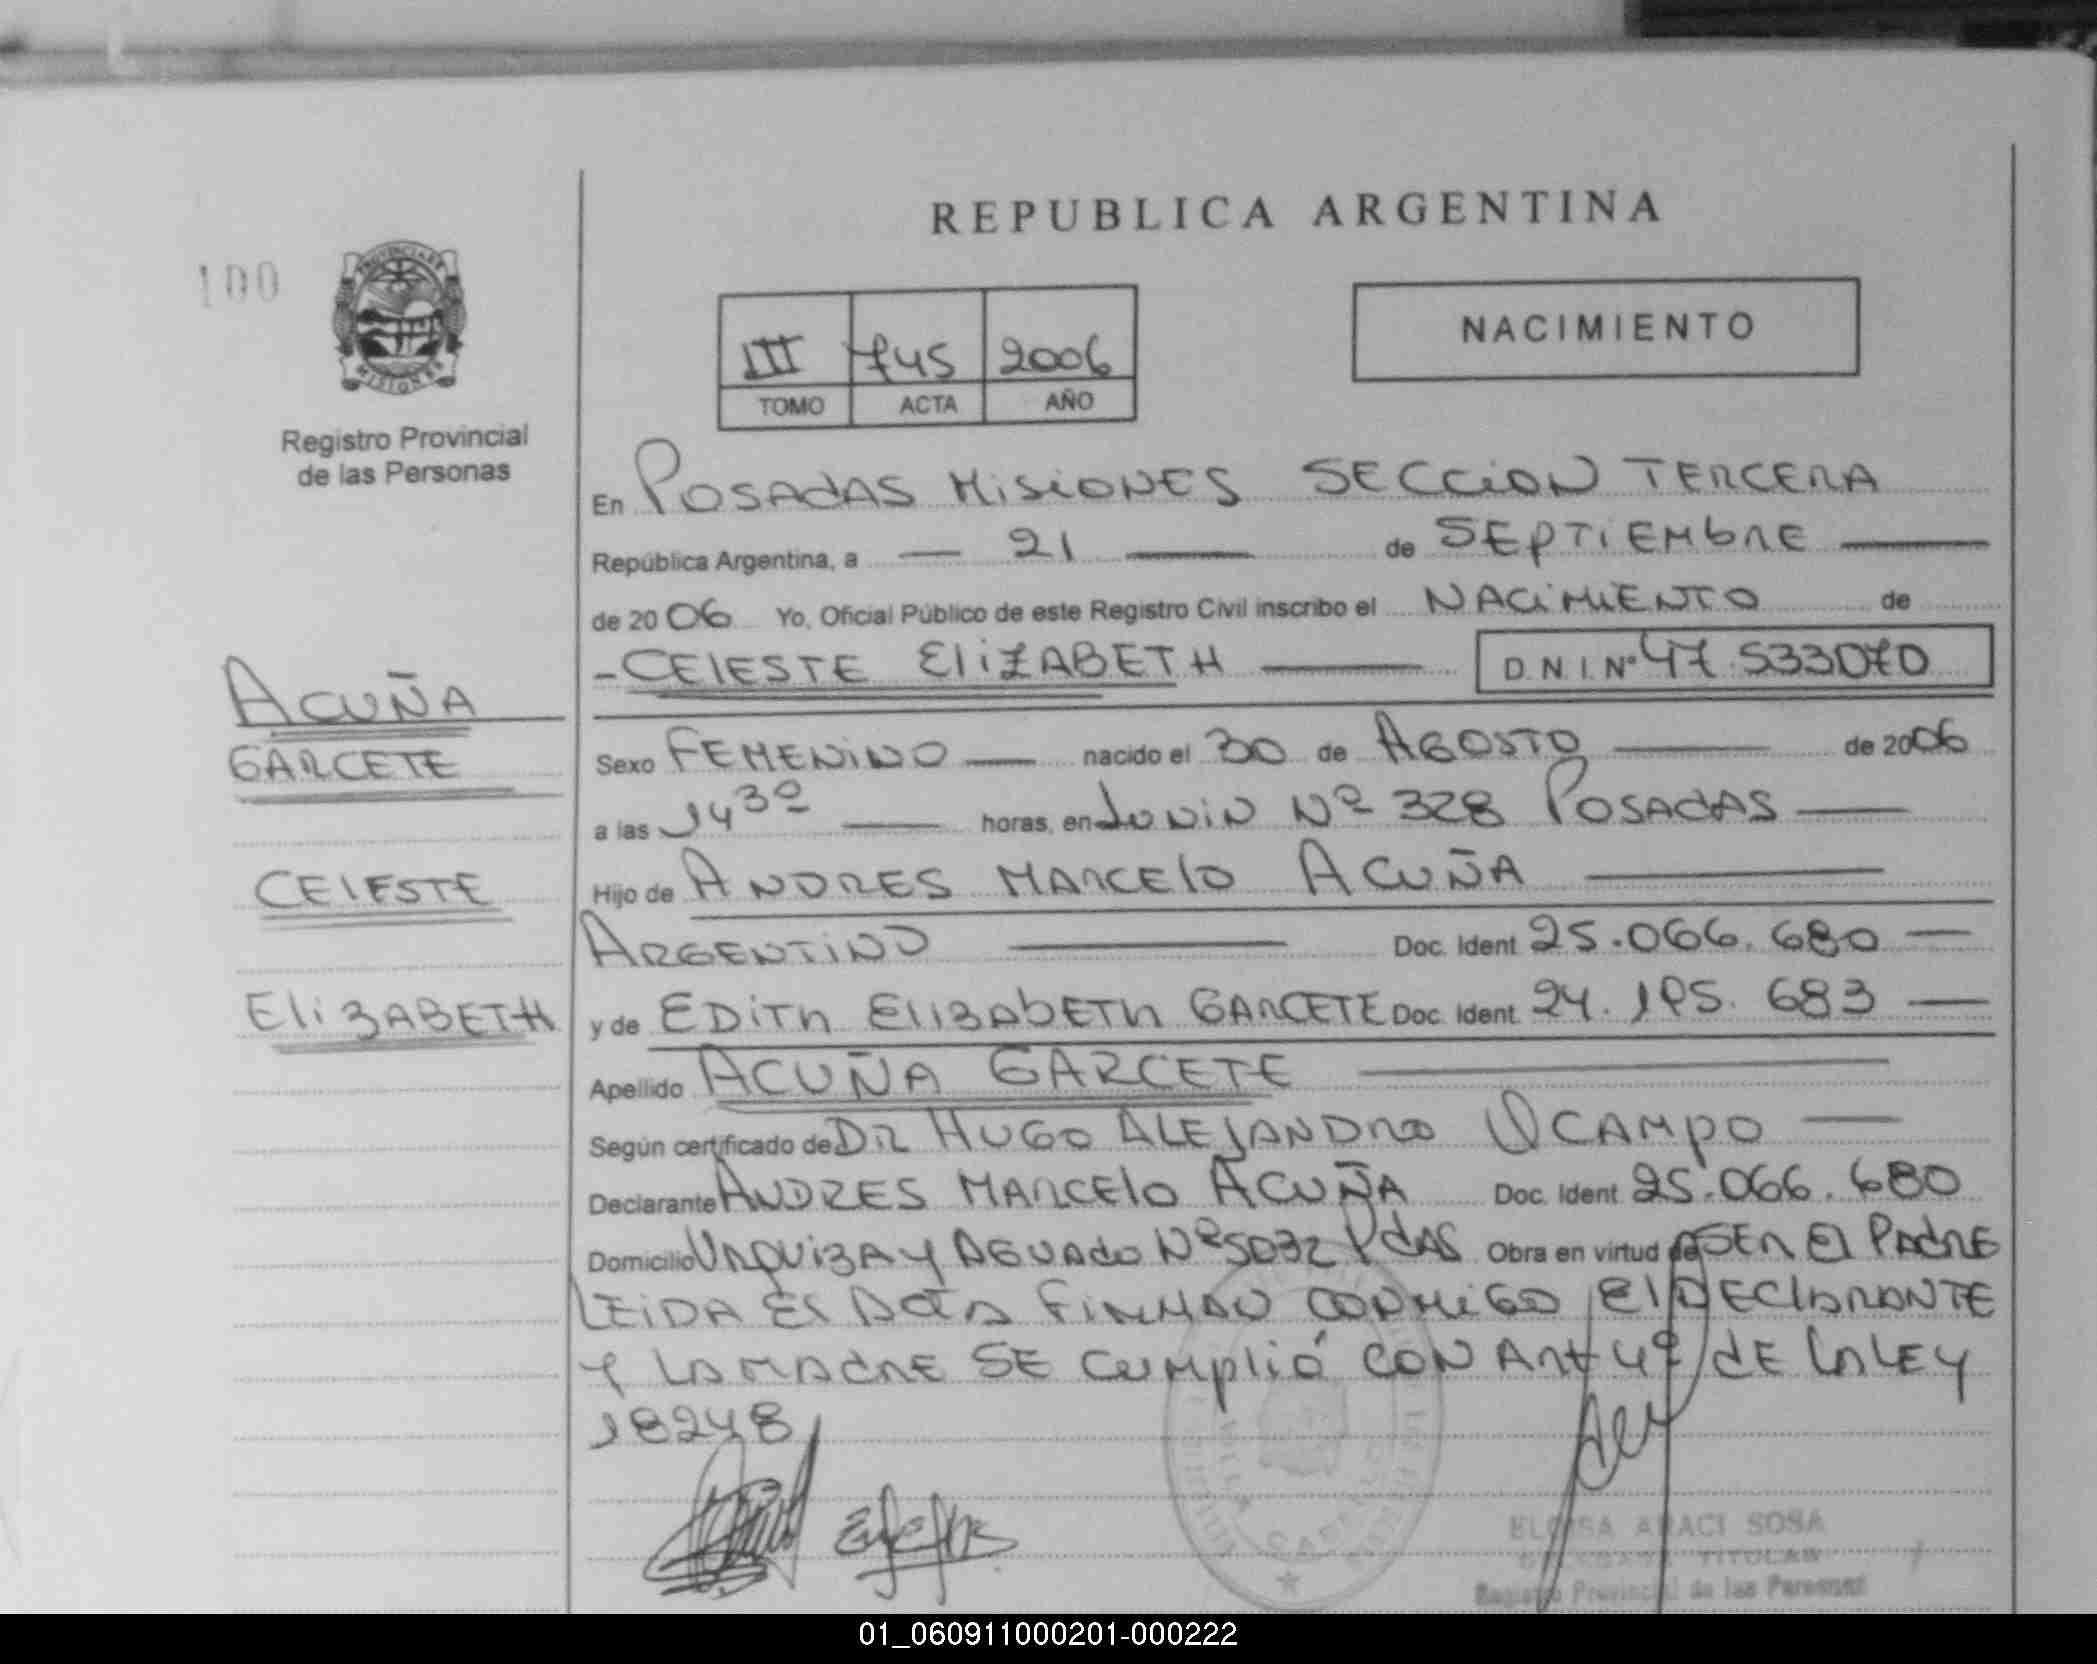 REPUBLICA ARGENTINA
100
PROVINCIA DE
MISIONES
Registro Provincial
de las Personas
III 745 2006
TOMO ACTA AÑO
NACIMIENTO
En POSAdAS MisiONES SECCiON TERCERA
República Argentina, a — 21 — de SEPTiEMbRE —
de 2006 Yo, Oficial Público de este Registro Civil inscribo el NACiMiENTO de
- CElESTE EliZABETH — D.N.I. Nº 47.533070
ACUÑA
GARCETE
CElESTE
EliZABETH
Sexo FEMENiNO — nacido el 30 de AGOSTO — de 2006
a las 14 30 — horas, en JUNiN Nº 328 POSAdAS —
Hijo de ANDRES MARCElO ACUÑA —
ARGENTiNO — Doc. Ident. 25.066.680 —
y de EDiTh EliZAbETh GARCETE Doc. Ident. 24.195.683 —
Apellido ACUÑA GARCETE —
Según certificado de DR HUGO ALEJANDRO OCAMPO —
Declarante ANDRES MARCElO ACUÑA Doc. Ident. 25.066.680
Domicilio URQUiZA y AGUAdO Nº 5032 PdAS Obra en virtud de SER El PAdRE
LEiDA El ActA FiRMAN CONMiGO El DEClARANTE
Y LA MAdRE SE CUMplió CON ARt 4º dE lA LEY
18248
ELOISA ARACI SOSA
DELEGADA TITULAR
Registro Provincial de las Personas
01_060911000201-000222